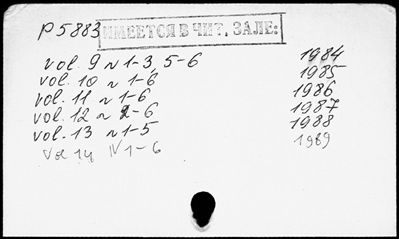 P5883 ИМЕЕТСЯ В ЧИТ. ЗАЛЕ:
vol. 9 n 1-3, 5-6 1984
vol. 10 n 1-6 1985
vol. 11 n 1-6 1986
vol. 12 n 2-6 1987
vol. 13 n 1-5 1988
Vol 14 N 1-6 1989